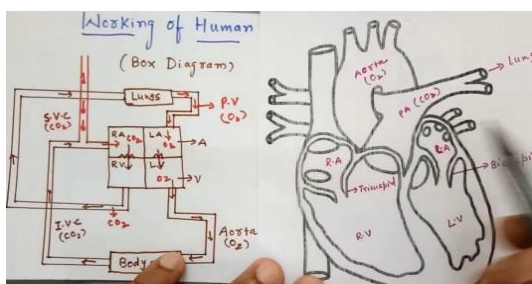 Working of Human
(Box Diagram)
Lungs
P.V
(O₂)
S.V.C
(CO₂)
RA CO₂
LA
O₂
A
R.V
L.V
O₂
V
CO₂
I.V.C
(CO₂)
Aorta
(O₂)
Body
Aorta
(O₂)
PA (CO₂)
Lungs
R.A
L.A
Tricuspid
R.V
L.V